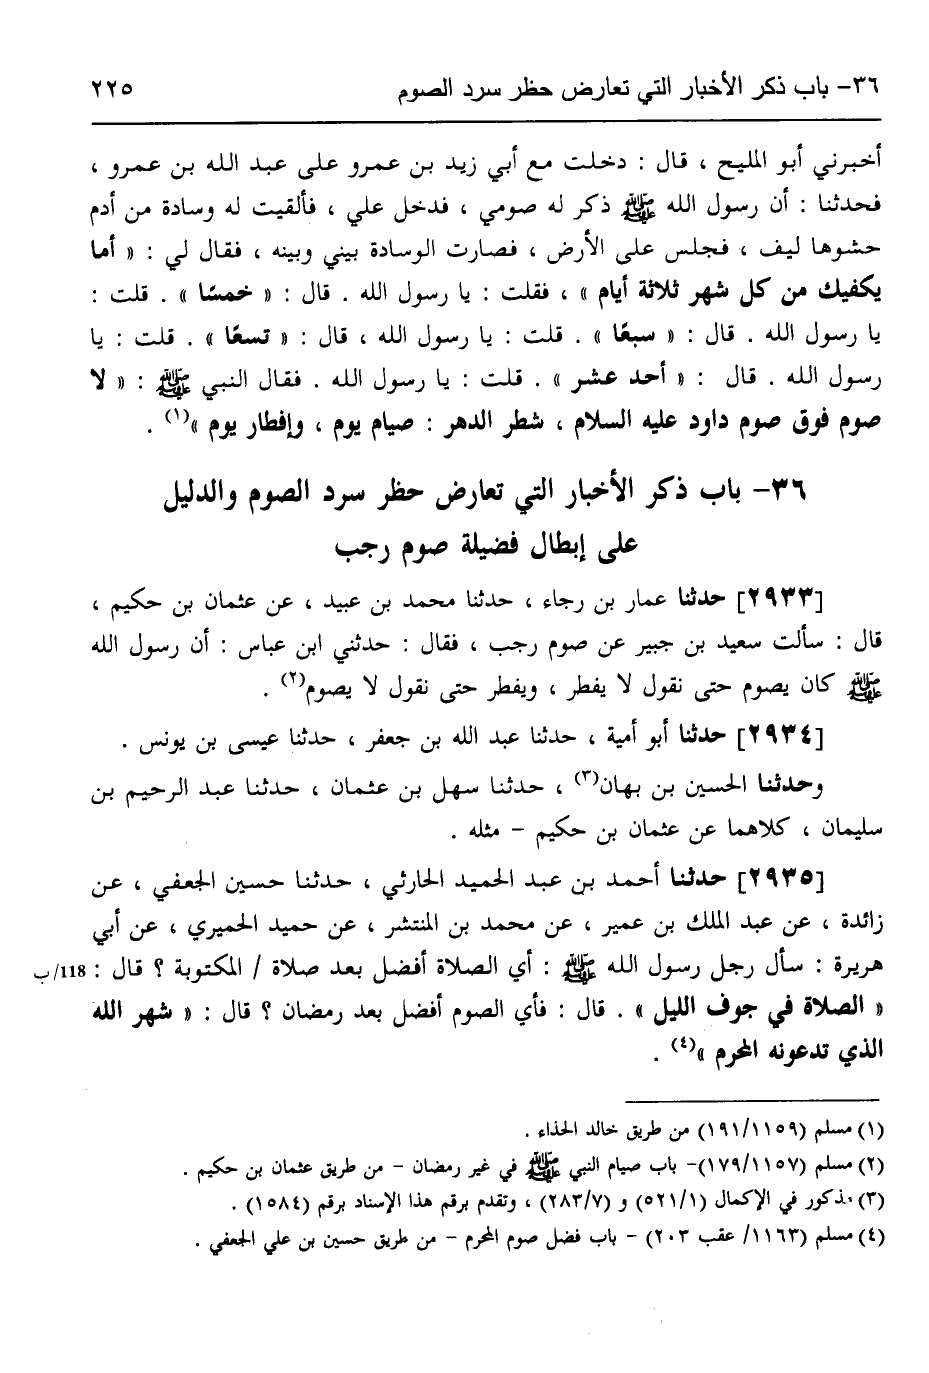 ٣٦- باب ذكر الأخبار التي تعارض حظر سرد الصوم ٢٢٥
أخبرني أبو المليح ، قال : دخلت مع أبي زيد بن عمرو على عبد الله بن عمرو ،
فحدثنا : أن رسول الله ﷺ ذكر له صومي ، فدخل علي ، فألقيت له وسادة من أدم
حشوها ليف ، فجلس على الأرض ، فصارت الوسادة بيني وبينه ، فقال لي : « أما
يكفيك من كل شهر ثلاثة أيام » ، فقلت : يا رسول الله . قال : « خمسًا » . قلت :
يا رسول الله . قال : « سبعًا » . قلت : يا رسول الله ، قال : « تسعًا » . قلت : يا
رسول الله . قال : « أحد عشر » . قلت : يا رسول الله . فقال النبي ﷺ : « لا
صوم فوق صوم داود عليه السلام ، شطر الدهر : صيام يوم ، وإفطار يوم »(١) .
٣٦- باب ذكر الأخبار التي تعارض حظر سرد الصوم والدليل
على إبطال فضيلة صوم رجب
[٢٩٣٣] حدثنا عمار بن رجاء ، حدثنا محمد بن عبيد ، عن عثمان بن حكيم ،
قال : سألت سعيد بن جبير عن صوم رجب ، فقال : حدثني ابن عباس : أن رسول الله
ﷺ كان يصوم حتى نقول لا يفطر ، ويفطر حتى نقول لا يصوم(٢) .
[٢٩٣٤] حدثنا أبو أمية ، حدثنا عبد الله بن جعفر ، حدثنا عيسى بن يونس .
وحدثنا الحسين بن بهان(٣) ، حدثنا سهل بن عثمان ، حدثنا عبد الرحيم بن
سليمان ، كلاهما عن عثمان بن حكيم - مثله .
[٢٩٣٥] حدثنا أحمد بن عبد الحميد الحارثي ، حدثنا حسين الجعفي ، عن
زائدة ، عن عبد الملك بن عمير ، عن محمد بن المنتشر ، عن حميد الحميري ، عن أبي
هريرة : سأل رجل رسول الله ﷺ : أي الصلاة أفضل بعد صلاة / المكتوبة ؟ قال : 118/ب
« الصلاة في جوف الليل » . قال : فأي الصوم أفضل بعد رمضان ؟ قال : « شهر الله
الذي تدعونه المحرم »(٤) .
(١) مسلم (١٩١/١١٥٩) من طريق خالد الحذاء .
(٢) مسلم (١٧٩/١١٥٧)- باب صيام النبي ﷺ في غير رمضان - من طريق عثمان بن حكيم .
(٣) مذكور في الإكمال (٥٢١/١) و (٢٨٣/٧) ، وتقدم برقم هذا الإسناد برقم (١٥٨٤) .
(٤) مسلم (١١٦٣/ عقب ٢٠٣) - باب فضل صوم المحرم - من طريق حسين بن علي الجعفي .